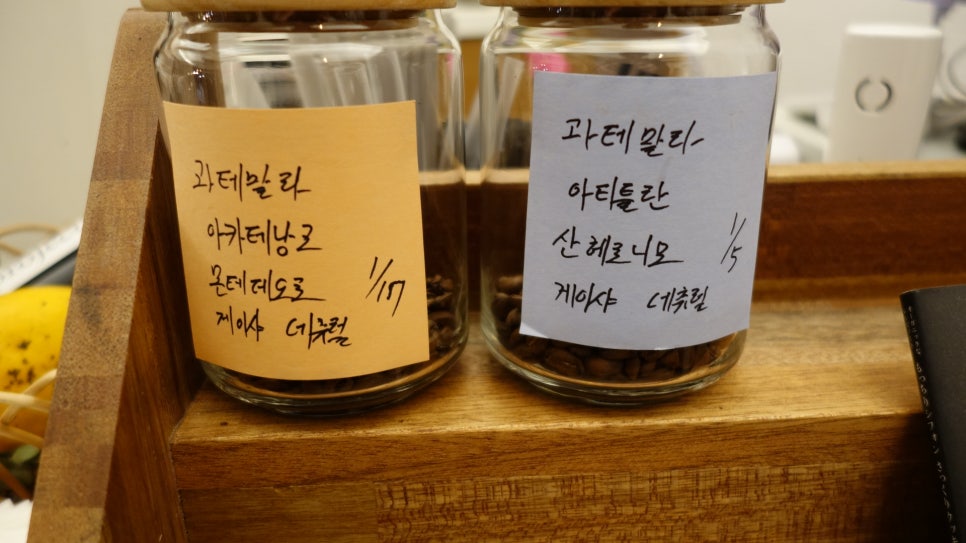 과테말라
아카테낭고
몬테데오로
게이샤 네츄럴
1/17
과테말라
아티틀란
산헤로니모
게이샤 네츄럴
1/5